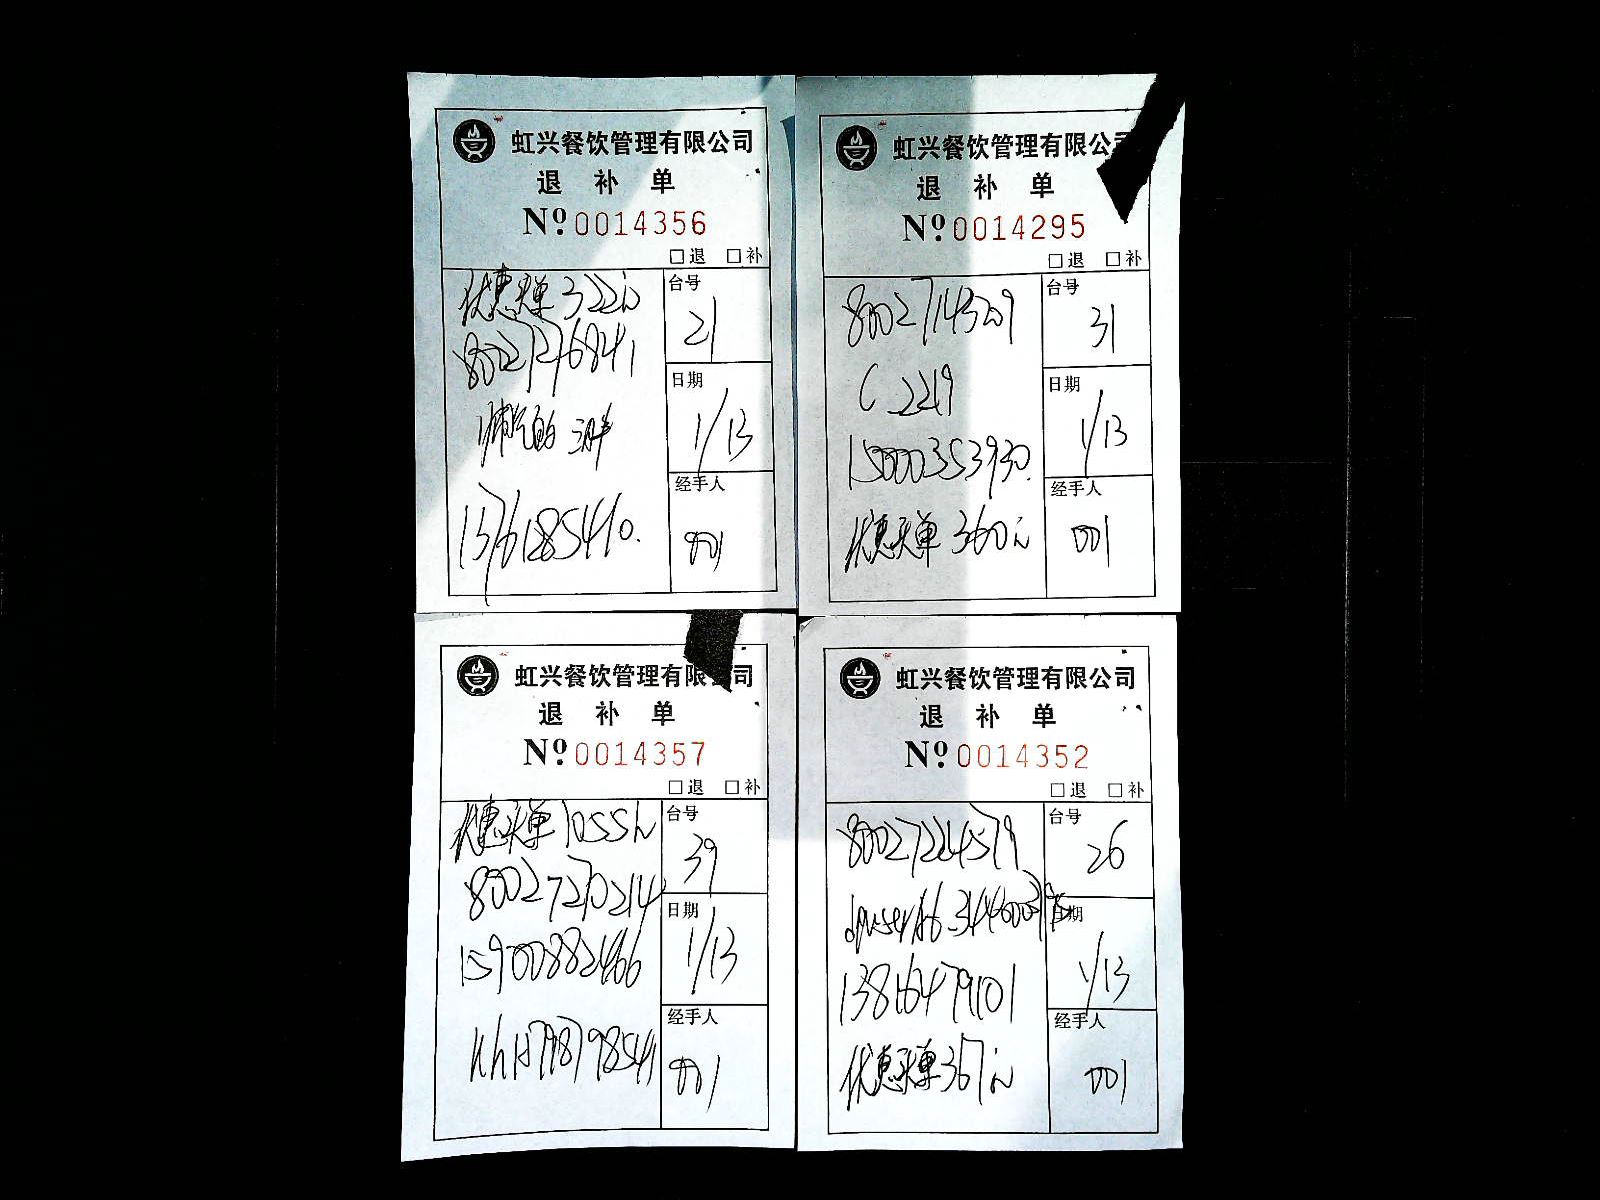 虹兴餐饮管理有限公司
退 补 单
Nº 0014356
□退 □补
优惠买单 322元
8002726841
帅气的
13761285410.
台号
21
日期
1/13
经手人
001
虹兴餐饮管理有限公
退 补 单
Nº 0014295
□退 □补
C 2219
15000353930.
优惠买单 360元
台号
31
日期
1/13
经手人
001
虹兴餐饮管理有限 司
退 补 单
Nº 0014357
□退 □补
优惠买单 1055元
80027270214
15900882466
台号
39
日期
1/13
经手人
001
虹兴餐饮管理有限公司
退 补 单
Nº 0014352
□退 □补
80027224579
13816479101
优惠买单 367元
台号
26
日期
1/13
经手人
001